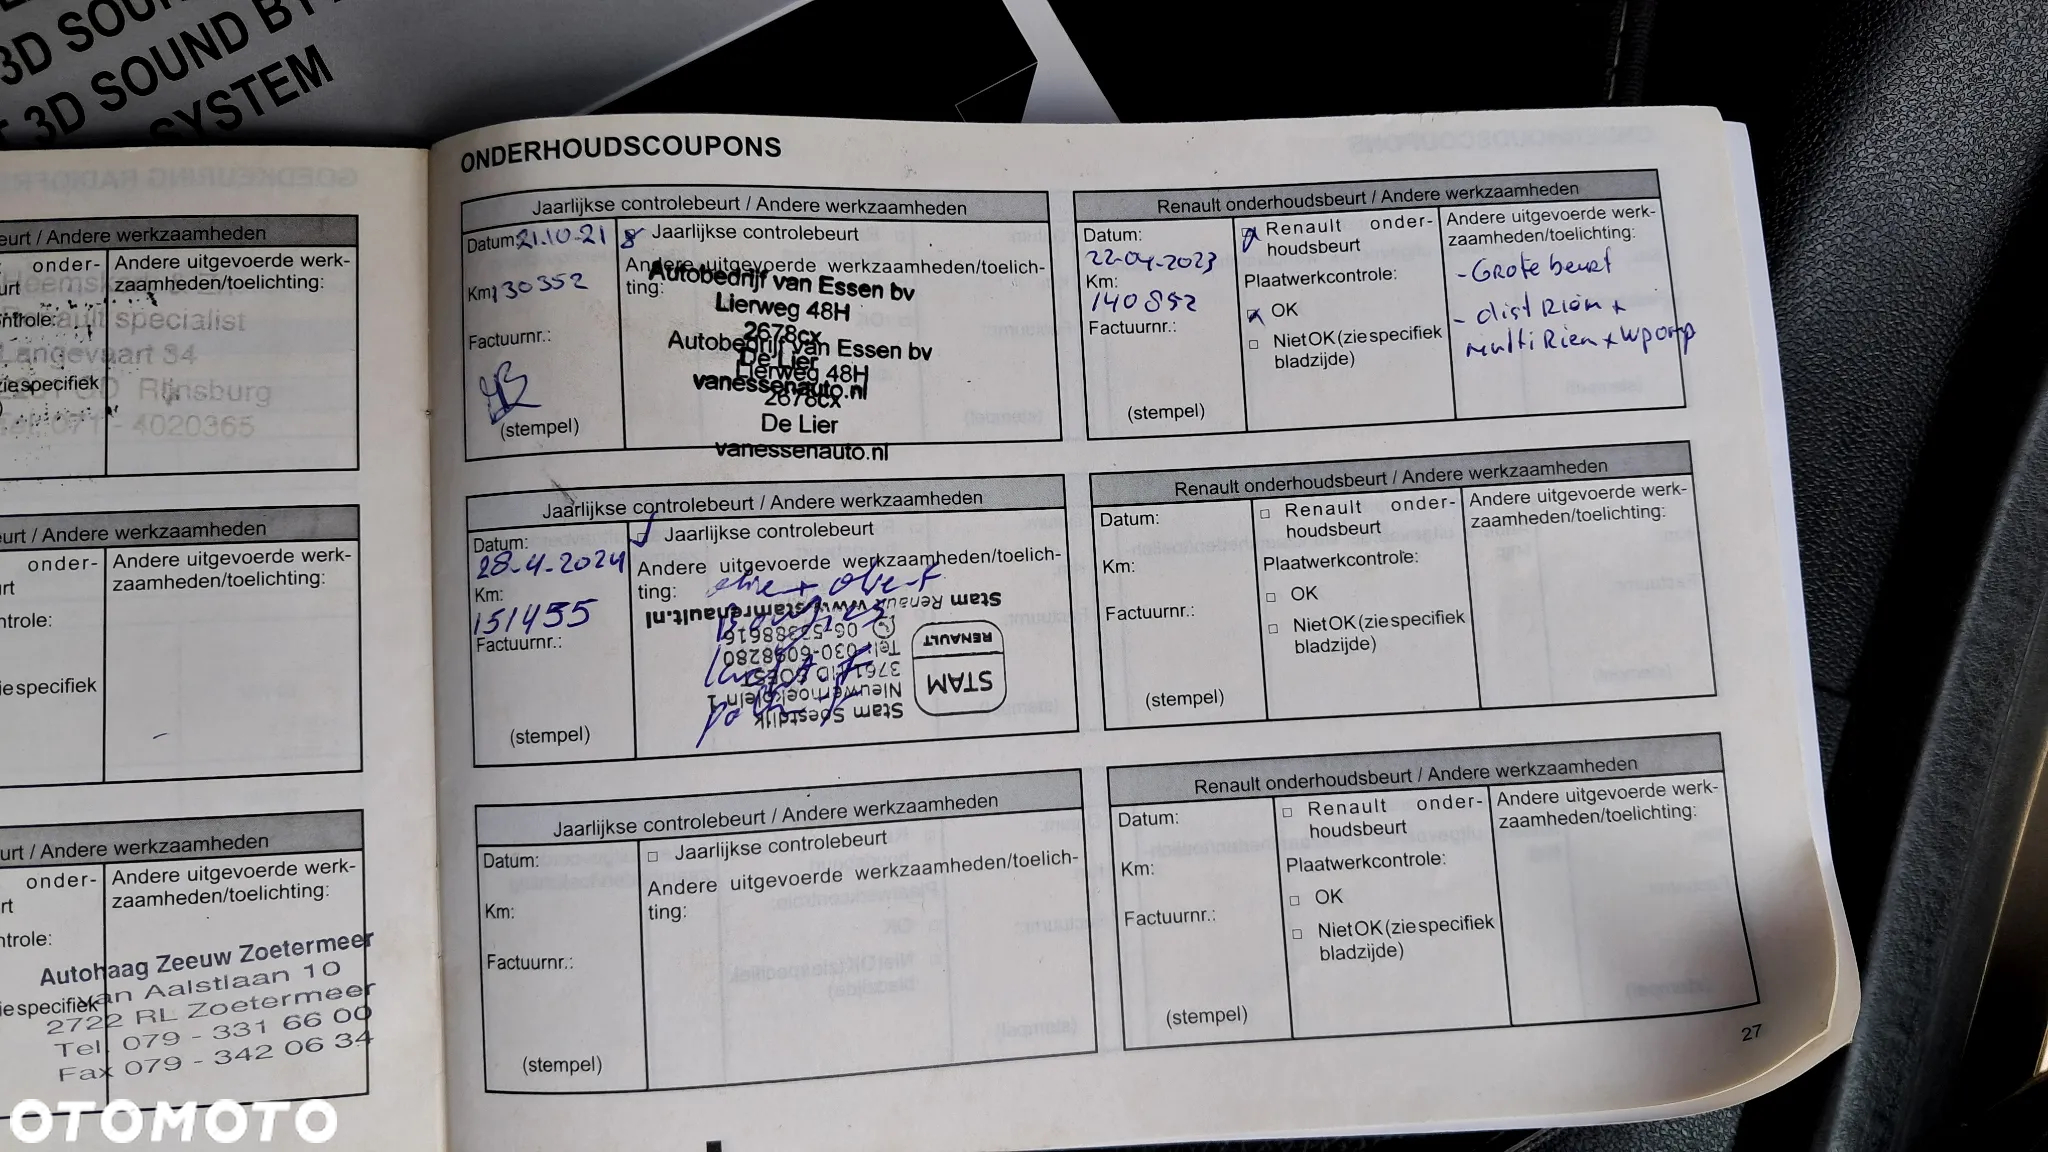 3D SOUN
3D SOUND BY
SYSTEM
eurt / Andere werkzaamheden
onder-
urt
Andere uitgevoerde werk-
zaamheden/toelichting:
ntrole:
ult specialist
Langevaart 34
zie specifiek
Rijnsburg
tel: 071 - 4020365
urt / Andere werkzaamheden
onder-
rt
Andere uitgevoerde werk-
zaamheden/toelichting:
ntrole:
ie specifiek
urt / Andere werkzaamheden
onder-
rt
Andere uitgevoerde werk-
zaamheden/toelichting:
ntrole:
ie specifiek
Autohaag Zeeuw Zoetermeer
van Aalstlaan 10
2722 RL Zoetermeer
Tel. 079 - 331 66 00
Fax 079 - 342 06 34
ONDERHOUDSCOUPONS
Jaarlijkse controlebeurt / Andere werkzaamheden
Datum: 21.10-21
Km: 130352
Factuurnr.:
(stempel)
Jaarlijkse controlebeurt
Andere uitgevoerde werkzaamheden/toelich-
ting:
Autobedrijf van Essen bv
Lierweg 48H
2678cx
De Lier
vanessenauto.nl
Autobedrijf van Essen bv
Lierweg 48H
2678cx
De Lier
vanessenauto.nl
Renault onderhoudsbeurt / Andere werkzaamheden
Datum:
22-04-2023
Km:
140852
Factuurnr.:
(stempel)
Renault onder-
houdsbeurt
Plaatwerkcontrole:
OK
Niet OK (zie specifiek
bladzijde)
Andere uitgevoerde werk-
zaamheden/toelichting:
- Grote beurt
- dist Riem +
multiRiem + wpomp
Jaarlijkse controlebeurt / Andere werkzaamheden
Datum:
28-4-2024
Km:
151455
Factuurnr.:
(stempel)
Jaarlijkse controlebeurt
Andere uitgevoerde werkzaamheden/toelich-
ting:
Stam Soestdijk
Nieuwerhoekplein 1
Tel: 030-6098280
Stam Renault www.stamrenault.nl
STAM
RENAULT
Renault onderhoudsbeurt / Andere werkzaamheden
Datum:
Km:
Factuurnr.:
(stempel)
Renault onder-
houdsbeurt
Plaatwerkcontrole:
OK
Niet OK (zie specifiek
bladzijde)
Andere uitgevoerde werk-
zaamheden/toelichting:
Jaarlijkse controlebeurt / Andere werkzaamheden
Datum:
Km:
Factuurnr.:
(stempel)
Jaarlijkse controlebeurt
Andere uitgevoerde werkzaamheden/toelich-
ting:
Renault onderhoudsbeurt / Andere werkzaamheden
Datum:
Km:
Factuurnr.:
(stempel)
Renault onder-
houdsbeurt
Plaatwerkcontrole:
OK
Niet OK (zie specifiek
bladzijde)
Andere uitgevoerde werk-
zaamheden/toelichting:
27
OTOMOTO